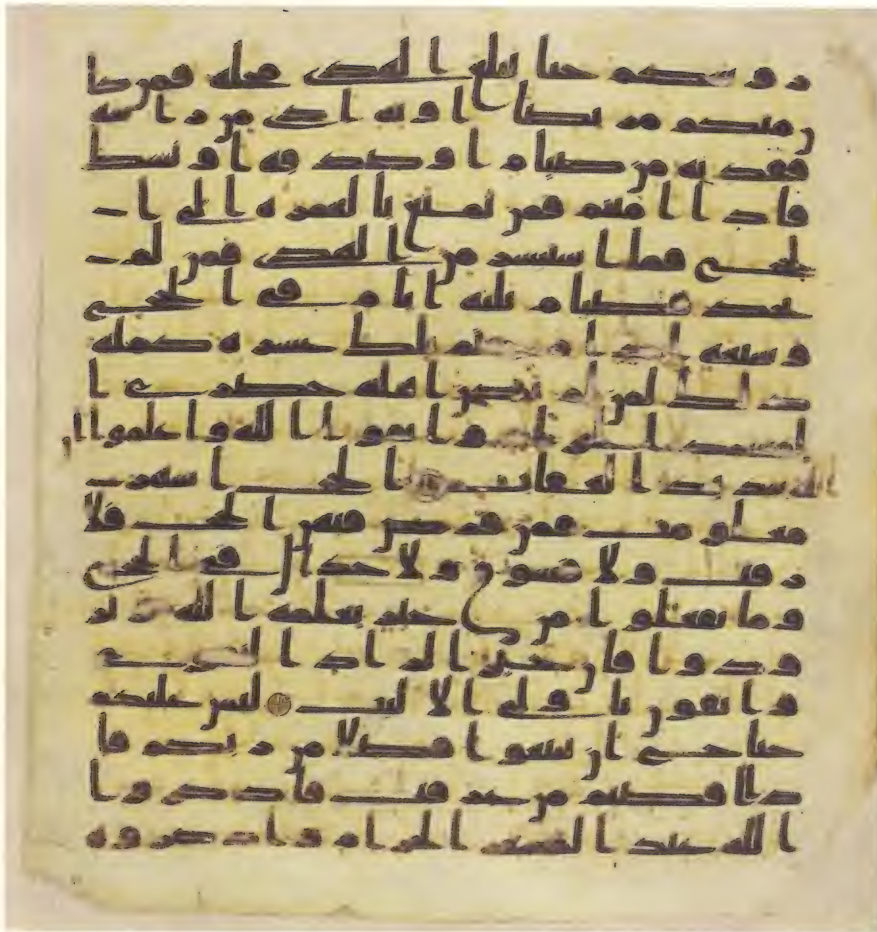 روسكم حتا يبلغ الهدى محله فمن كا
ن منكم مريضا او به اذى من راسه
ففديه من صيام او صدقه او نسك
فاذا امنتم فمن تمتع بالعمره الى ا
لحج فما استيسر من الهدى فمن لم
يجد فصيام ثلثه ايام فى الحج
وسبعه اذا رجعتم تلك عشره كمله
ذلك لمن لم يكن اهله حضرى ا
لمسجد الحرام واتقوا الله واعلموا ان
الله شديد العقاب الحج اشهر
معلومت فمن فرض فيهن الحج فلا
رفث ولا فسوق ولا جدال فى الحج
وما تفعلوا من خير يعلمه الله وتز
ودوا فان خير الزاد التقوى
واتقون ياولى الالبب ليس عليكم
جناح ان تبتغوا فضلا من ربكم فا
ذا افضتم من عرفت فاذكروا
الله عند المشعر الحرام واذكروه